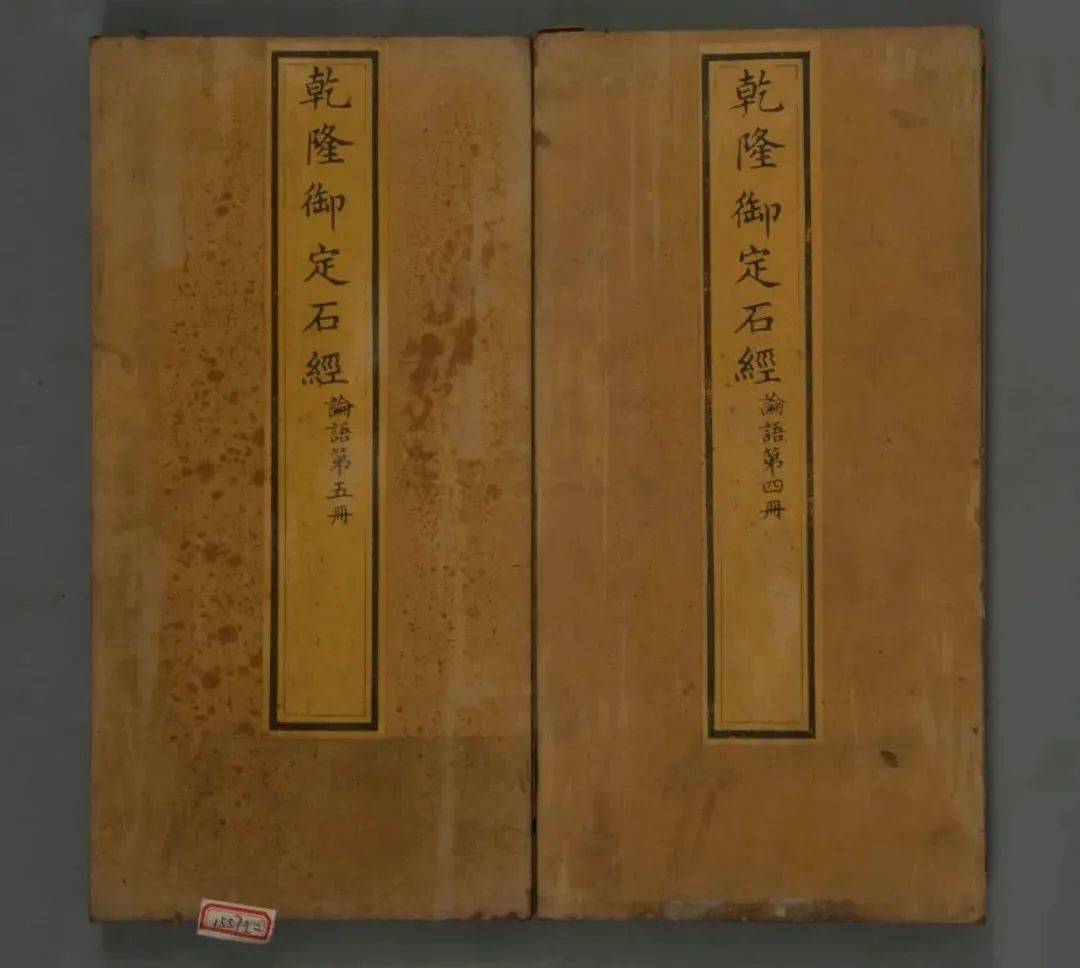 乾隆御定石經
論語第四冊
乾隆御定石經
論語第五冊